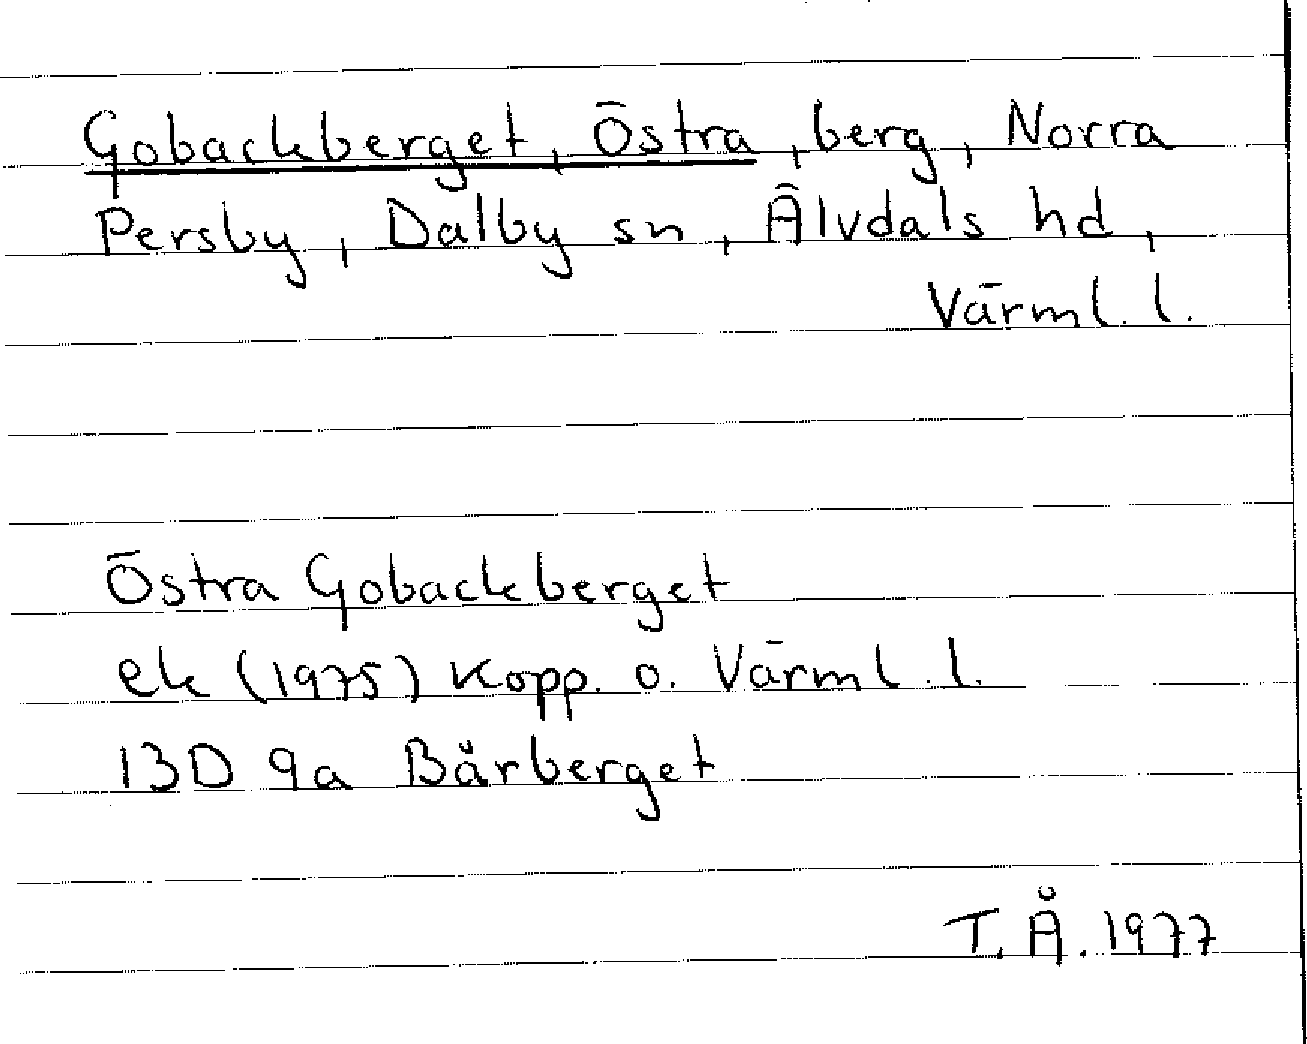 Gobackberget, Östra, berg, Norra
Persby, Dalby sn, Älvdals hd,
Värml. l.
Östra Gobackberget
ek (1975) Kopp. o. Värml. l.
13D 9a Bårberget
T. Å. 1977